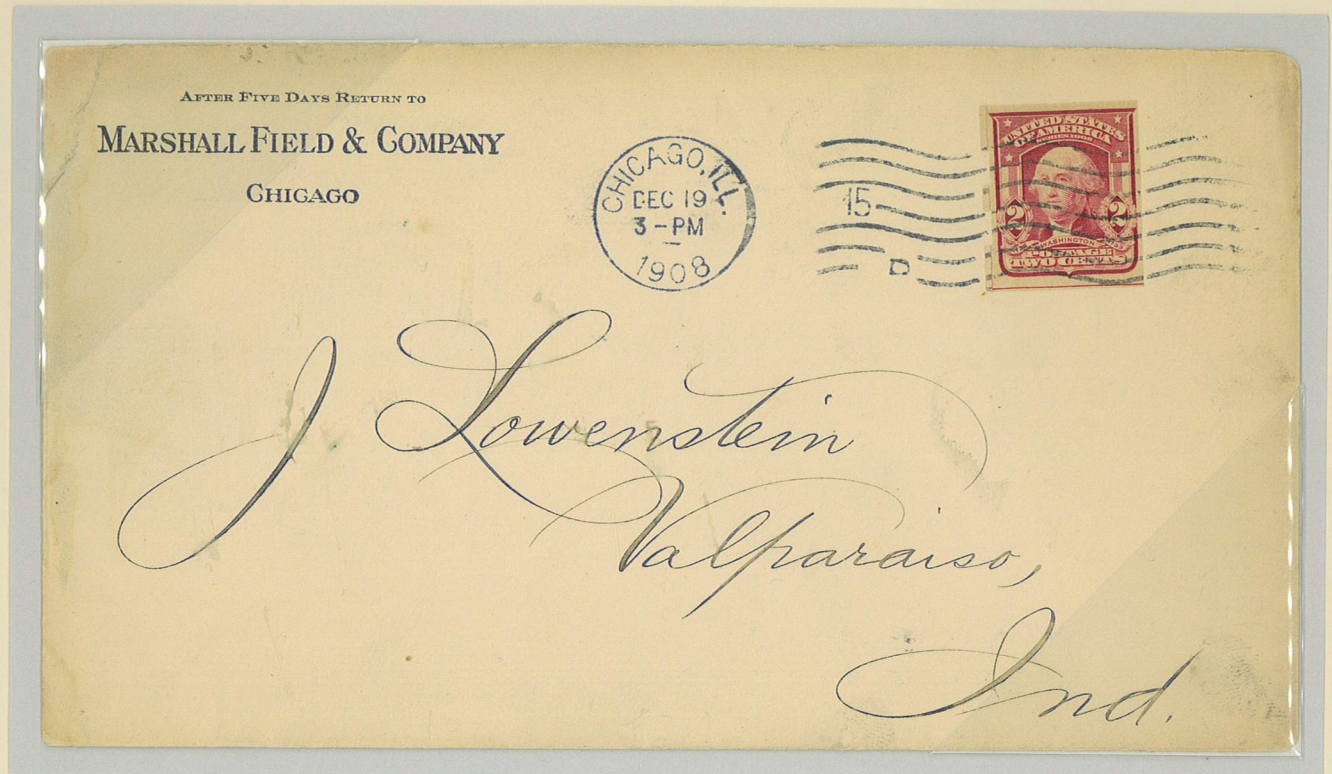 AFTER FIVE DAYS RETURN TO
MARSHALL FIELD & COMPANY
CHICAGO
CHICAGO, ILL.
DEC 19
3-PM
1908
15
D
UNITED STATES
OF AMERICA
SERIES 1902
2 2
WASHINGTON
POSTAGE
TWO CENTS
J Lowenstein
Valparaiso,
Ind.